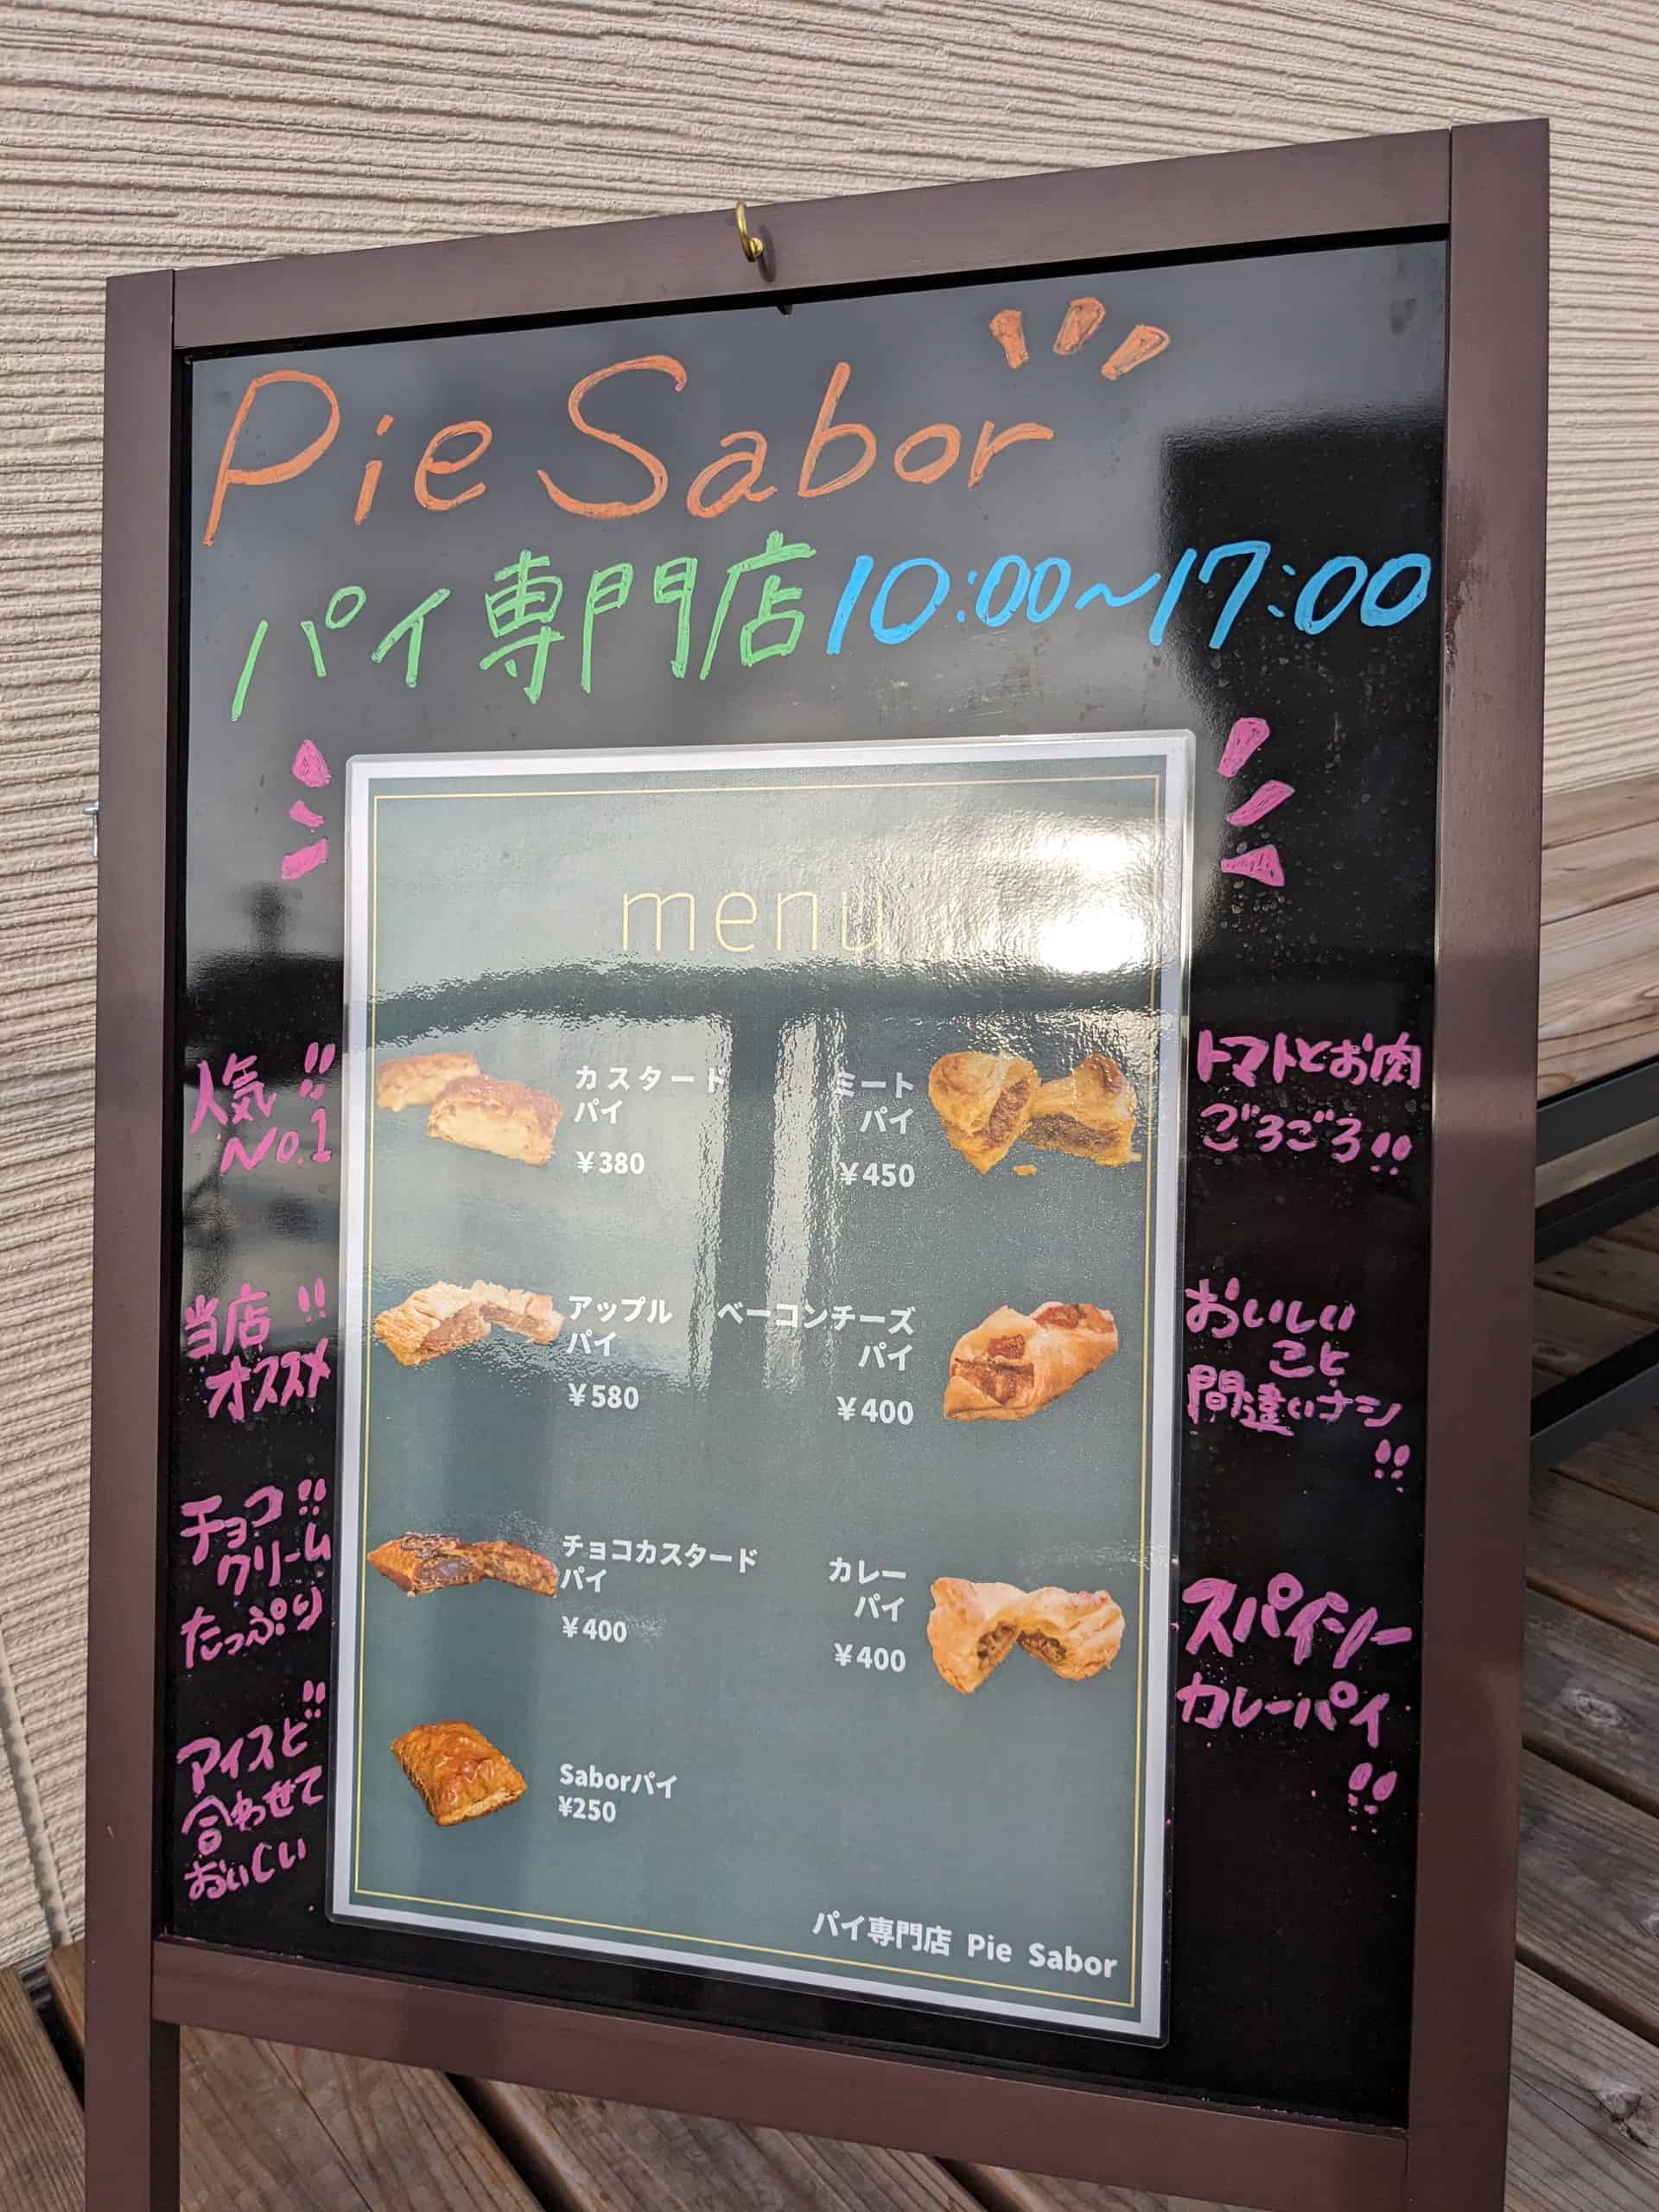 Pie Sabor
パイ専門店 10:00～17:00
menu
人気!!
No.1
カスタード
パイ
¥380
ミート
パイ
¥450
トマトとお肉
ごろごろ!!
当店!!
オススメ
アップル
パイ
¥580
ベーコンチーズ
パイ
¥400
おいしい
こと
間違いナシ
!!
チョコ!!
クリーム
たっぷり
チョコカスタード
パイ
¥400
カレー
パイ
¥400
スパイシー
カレーパイ
!!
アイスと!!
合わせて
おいしい
Saborパイ
¥250
パイ専門店 Pie Sabor